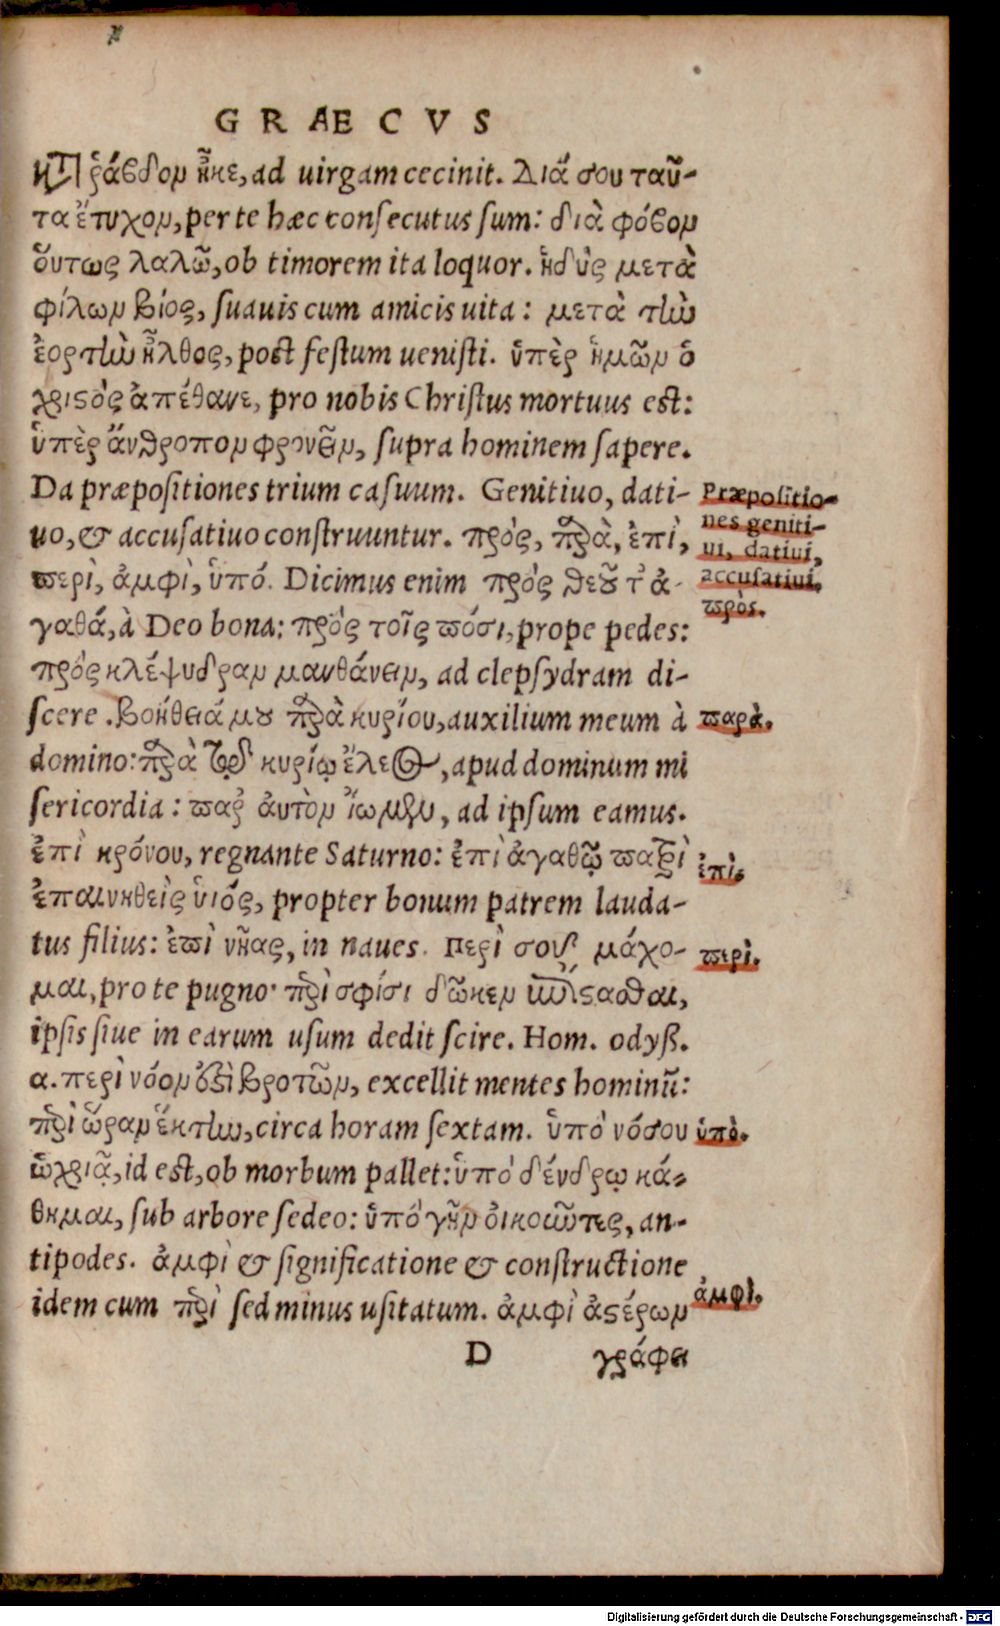 GRAECVS
κτ ῥάβδον ἧκε, ad uirgam cecinit. Διά σου ταῦ-
τα ἔτυχον, per te hæc consecutus sum: διὰ φόβον
οὕτως λαλῶ, ob timorem ita loquor. ἡδὺς μετὰ
φίλων βίος, suauis cum amicis uita: μετὰ τὴν
ἑορτὴν ἦλθος, post festum uenisti. ὑπὲρ ἡμῶν ὁ
χριςὸς ἀπέθανε, pro nobis Christus mortuus est:
ὑπὲρ ἄνθροπον φρονεῖν, supra hominem sapere.
Da præpositiones trium casuum. Genitiuo, dati-
uo, & accusatiuo construuntur. πρός, παρὰ, ἐπὶ,
περὶ, ἀμφὶ, ὑπό. Dicimus enim πρός θεοῦ τὰ ἀ-
γαθά, à Deo bona: πρός τοῖς πόσι, prope pedes:
πρός κλέψυδραν μανθάνειν, ad clepsydram di-
scere. βοήθειά μου παρὰ κυρίου, auxilium meum à
domino: παρὰ τῷ κυρίῳ ἔλεος, apud dominum mi
sericordia: παρ αὐτὸν ἴωμεν, ad ipsum eamus.
ἐπὶ κρόνου, regnante Saturno: ἐπὶ ἀγαθῷ πατρὶ
ἐπαινηθεὶς ὑιός, propter bonum patrem lauda-
tus filius: ἐπὶ νῆας, in naues. περὶ σοῦ μάχο-
μαι, pro te pugno· περὶ σφίσι δῶκεν ἐπίςασθαι,
ipsis siue in earum usum dedit scire. Hom. odyß.
α. περὶ νόον ἐςὶ βροτῶν, excellit mentes hominū:
περὶ ὥραν ἕκτην, circa horam sextam. ὑπό νόσου
ὠχριᾷ, id est, ob morbum pallet: ὑπό δένδρῳ κά-
θημαι, sub arbore sedeo: ὑπό γῆν οἰκοῦντες, an-
tipodes. ἀμφὶ & significatione & constructione
idem cum περὶ sed minus usitatum. ἀμφὶ ἀςέρων
D γράφει
Præpositio-
nes geniti-
ui, datiui,
accusatiui.
πρὸς.
παρὰ.
ἐπὶ.
περὶ.
ὑπὸ.
ἀμφὶ.
Digitalisierung gefördert durch die Deutsche Forschungsgemeinschaft - DFG